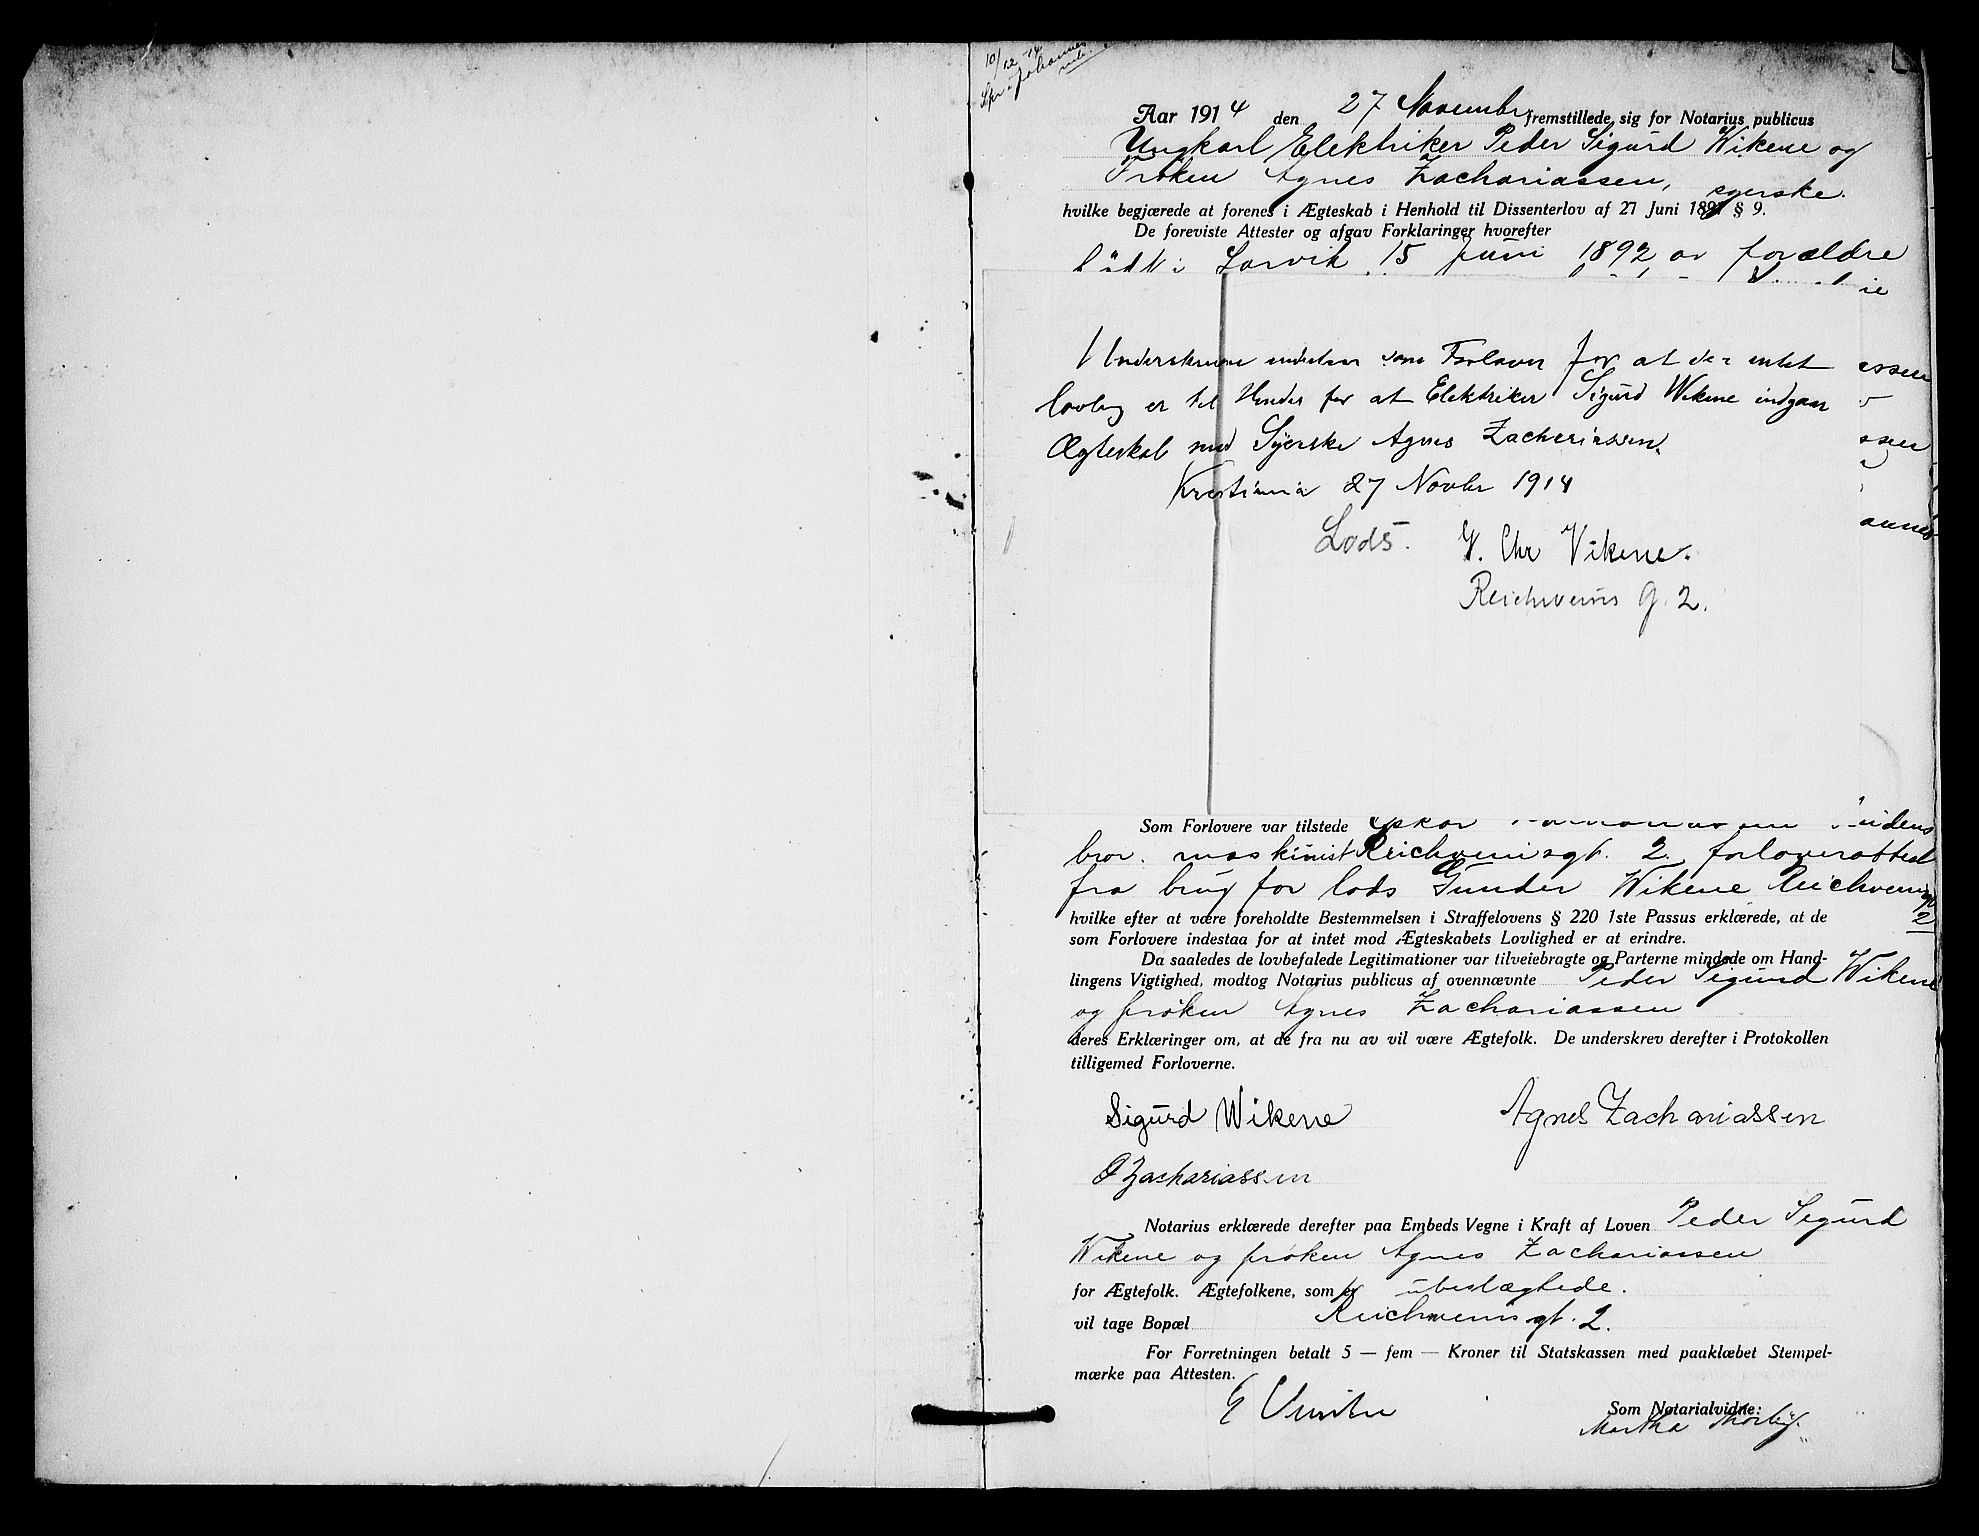 10/12 - 14
Aar 1914 den 27 Novembr fremstillede sig for Notarius publicus
Ungkarl Elektriker Peder Sigurd Wikene og
Frøken Agnes Zachariassen, syerske.
hvilke begjærede at forenes i Ægteskab i Henhold til Dissenterlov af 27 Juni 1891 § 9.
De foreviste Attester og afgav Forklaringer hvorefter
født i Larvik 15 Juni 1892 av forældre
Underskrevne indestaar som Forlover for at der intet
lovlig er til Hinder for at Elektriker Sigurd Wikene indgaar
Ægteskab med Syerske Agnes Zachariassen.
Kristiania 27 Novbr 1914
Lods. G. Chr Vikene.
Reichweins g. 2.
Som Forlovere var tilstede Oskar Zachariassen brudens
bror. maskinist Reichweinsgt. 2. forloverattest
fra brug for lods Gunder Wikene Reichweinsgt
2
hvilke efter at være foreholdte Bestemmelsen i Straffelovens § 220 1ste Passus erklærede, at de
som Forlovere indestaa for at intet mod Ægteskabets Lovlighed er at erindre.
Da saaledes de lovbefalede Legitimationer var tilveiebragte og Parterne mindede om Hand-
lingens Vigtighed, modtog Notarius publicus af ovennævnte Peder Sigurd Wikene
og frøken Agnes Zachariassen
deres Erklæringer om, at de fra nu av vil være Ægtefolk. De underskrev derefter i Protokollen
tilligemed Forloverne.
Sigurd Wikene Agnes Zachariassen
O Zachariassen
Notarius erklærede derefter paa Embeds Vegne i Kraft af Loven Peder Sigurd
Wikene og frøken Agnes Zachariassen
for Ægtefolk. Ægtefolkene, som er ubeslægtede.
vil tage Bopæl Reichweinsgt. 2.
For Forretningen betalt 5 — fem — Kroner til Statskassen med paaklæbet Stempel-
mærke paa Attesten.
Som Notarialvidne:
Martha